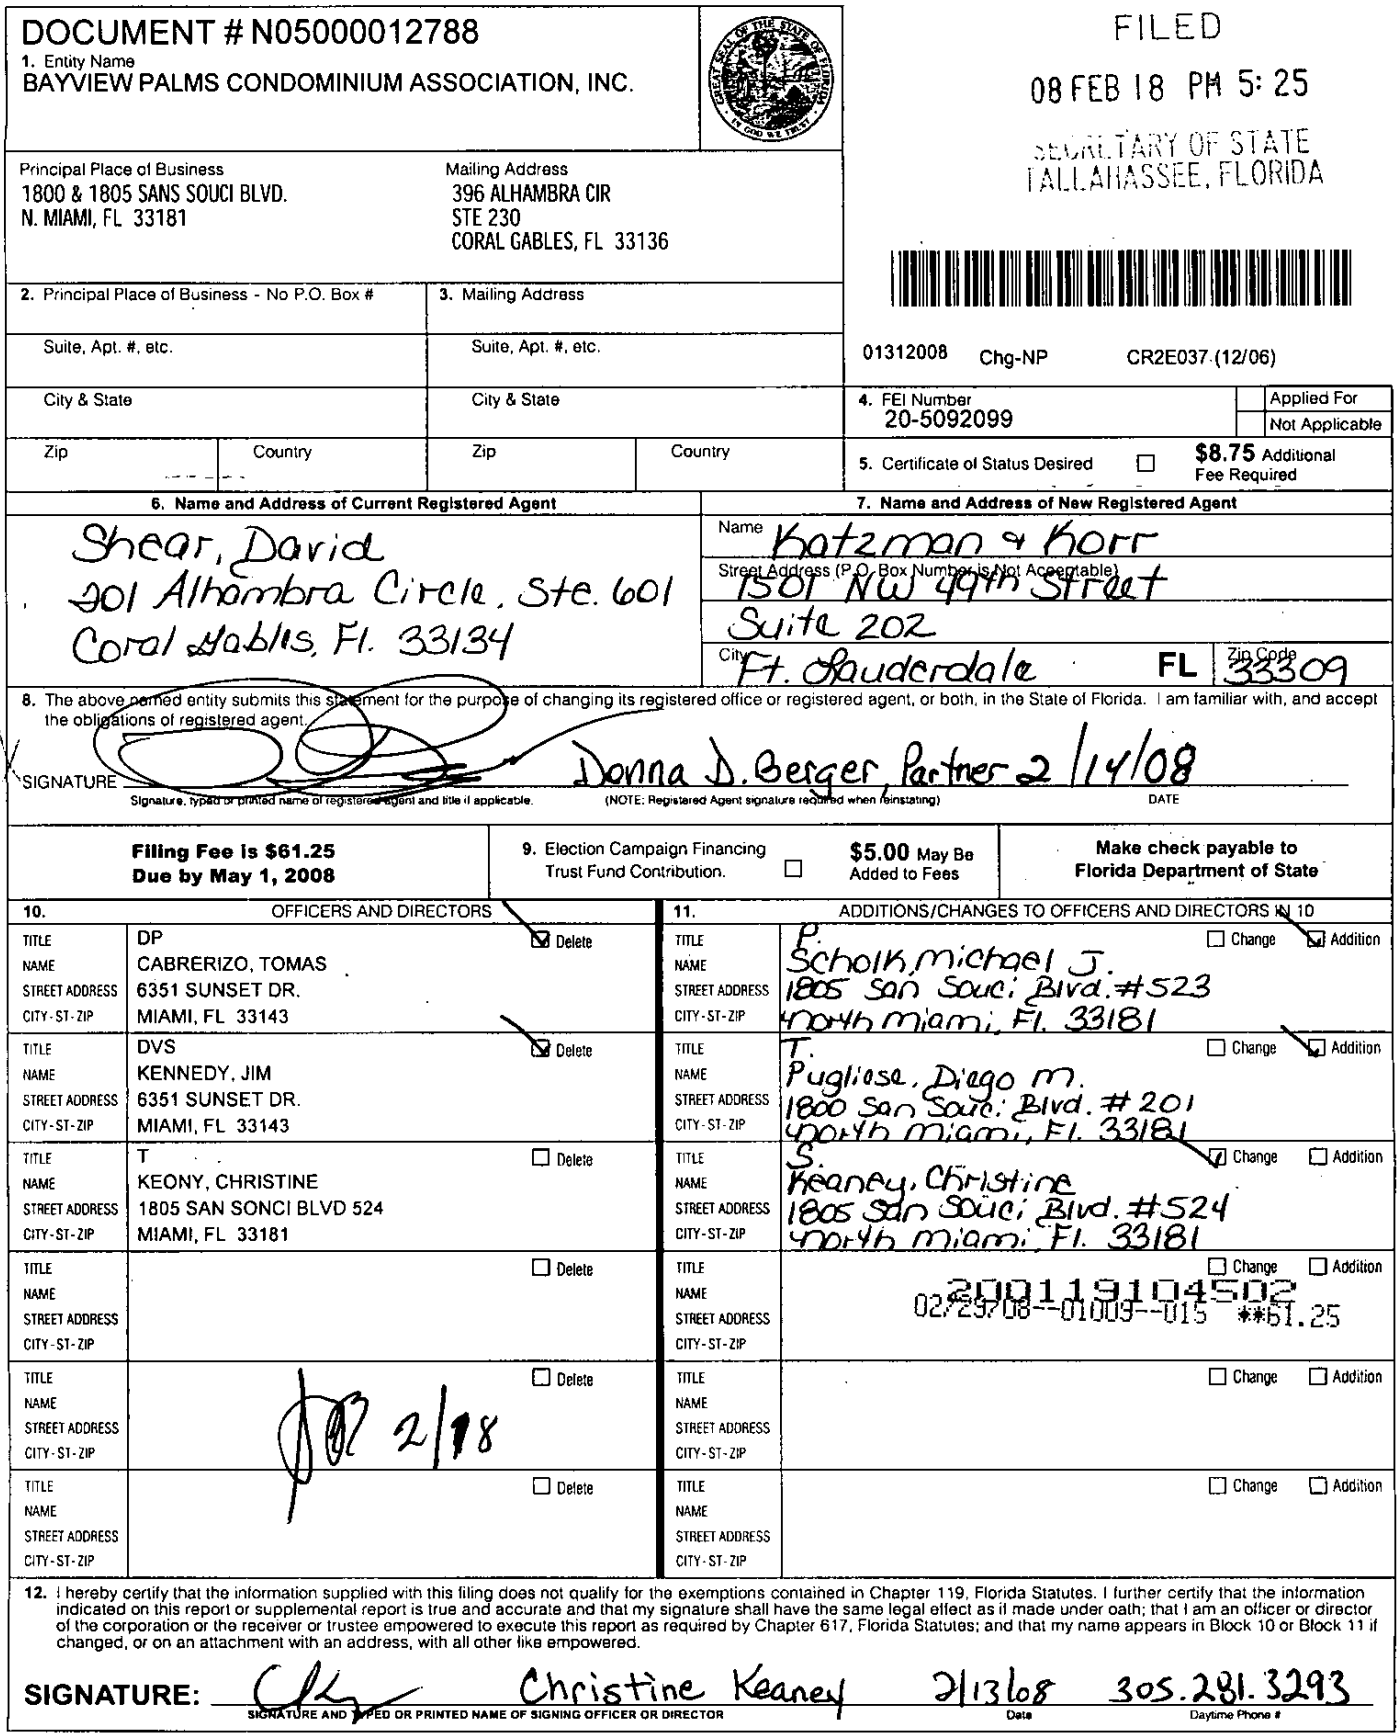 DOCUMENT # N05000012788
1. Entity Name
BAYVIEW PALMS CONDOMINIUM ASSOCIATION, INC.
GREAT SEAL OF THE STATE OF FLORIDA
IN GOD WE TRUST
FILED
08 FEB 18 PM 5:25
SECRETARY OF STATE
TALLAHASSEE, FLORIDA
Principal Place of Business
1800 & 1805 SANS SOUCI BLVD.
N. MIAMI, FL 33181
Mailing Address
396 ALHAMBRA CIR
STE 230
CORAL GABLES, FL 33136
2. Principal Place of Business - No P.O. Box #
3. Mailing Address
Suite, Apt. #, etc.
Suite, Apt. #, etc.
01312008 Chg-NP CR2E037 (12/06)
City & State
City & State
4. FEI Number
20-5092099
Applied For
Not Applicable
Zip Country Zip Country
5. Certificate of Status Desired
$8.75 Additional
Fee Required
6. Name and Address of Current Registered Agent
Shear, David
201 Alhambra Circle, Ste. 601
Coral Gables, Fl. 33134
7. Name and Address of New Registered Agent
Name Katzman & Korr
Street Address (P.O. Box Number is Not Acceptable)
1501 NW 49th Street
Suite 202
City Ft. Lauderdale FL Zip Code 33309
8. The above named entity submits this statement for the purpose of changing its registered office or registered agent, or both, in the State of Florida. I am familiar with, and accept
the obligations of registered agent.
SIGNATURE Donna D. Berger, Partner 2/14/08
Signature, typed or printed name of registered agent and title if applicable. (NOTE: Registered Agent signature required when reinstating) DATE
Filing Fee is $61.25
Due by May 1, 2008
9. Election Campaign Financing
Trust Fund Contribution.
$5.00 May Be
Added to Fees
Make check payable to
Florida Department of State
10. OFFICERS AND DIRECTORS
TITLE DP Delete
NAME CABRERIZO, TOMAS
STREET ADDRESS 6351 SUNSET DR.
CITY-ST-ZIP MIAMI, FL 33143
TITLE DVS Delete
NAME KENNEDY, JIM
STREET ADDRESS 6351 SUNSET DR.
CITY-ST-ZIP MIAMI, FL 33143
TITLE T Delete
NAME KEONY, CHRISTINE
STREET ADDRESS 1805 SAN SONCI BLVD 524
CITY-ST-ZIP MIAMI, FL 33181
TITLE Delete
NAME
STREET ADDRESS
CITY-ST-ZIP
TITLE Delete
NAME
STREET ADDRESS
CITY-ST-ZIP
2/18
TITLE Delete
NAME
STREET ADDRESS
CITY-ST-ZIP
11. ADDITIONS/CHANGES TO OFFICERS AND DIRECTORS IN 10
TITLE P. Change Addition
NAME Scholk, Michael J.
STREET ADDRESS 1805 San Souci Blvd. #523
CITY-ST-ZIP North Miami, Fl. 33181
TITLE T. Change Addition
NAME Pugliese, Diego M.
STREET ADDRESS 1800 San Souci Blvd. #201
CITY-ST-ZIP North Miami, Fl. 33181
TITLE S. Change Addition
NAME Keaney, Christine
STREET ADDRESS 1805 San Souci Blvd. #524
CITY-ST-ZIP North Miami, Fl. 33181
TITLE Change Addition
NAME 200119104502
STREET ADDRESS 02/29/08--01009--015 **61.25
CITY-ST-ZIP
TITLE Change Addition
NAME
STREET ADDRESS
CITY-ST-ZIP
TITLE Change Addition
NAME
STREET ADDRESS
CITY-ST-ZIP
12. I hereby certify that the information supplied with this filing does not qualify for the exemptions contained in Chapter 119, Florida Statutes. I further certify that the information
indicated on this report or supplemental report is true and accurate and that my signature shall have the same legal effect as if made under oath; that I am an officer or director
of the corporation or the receiver or trustee empowered to execute this report as required by Chapter 617, Florida Statutes; and that my name appears in Block 10 or Block 11 if
changed, or on an attachment with an address, with all other like empowered.
SIGNATURE: Christine Keaney 2/13/08 305.281.3293
SIGNATURE AND TYPED OR PRINTED NAME OF SIGNING OFFICER OR DIRECTOR Date Daytime Phone #